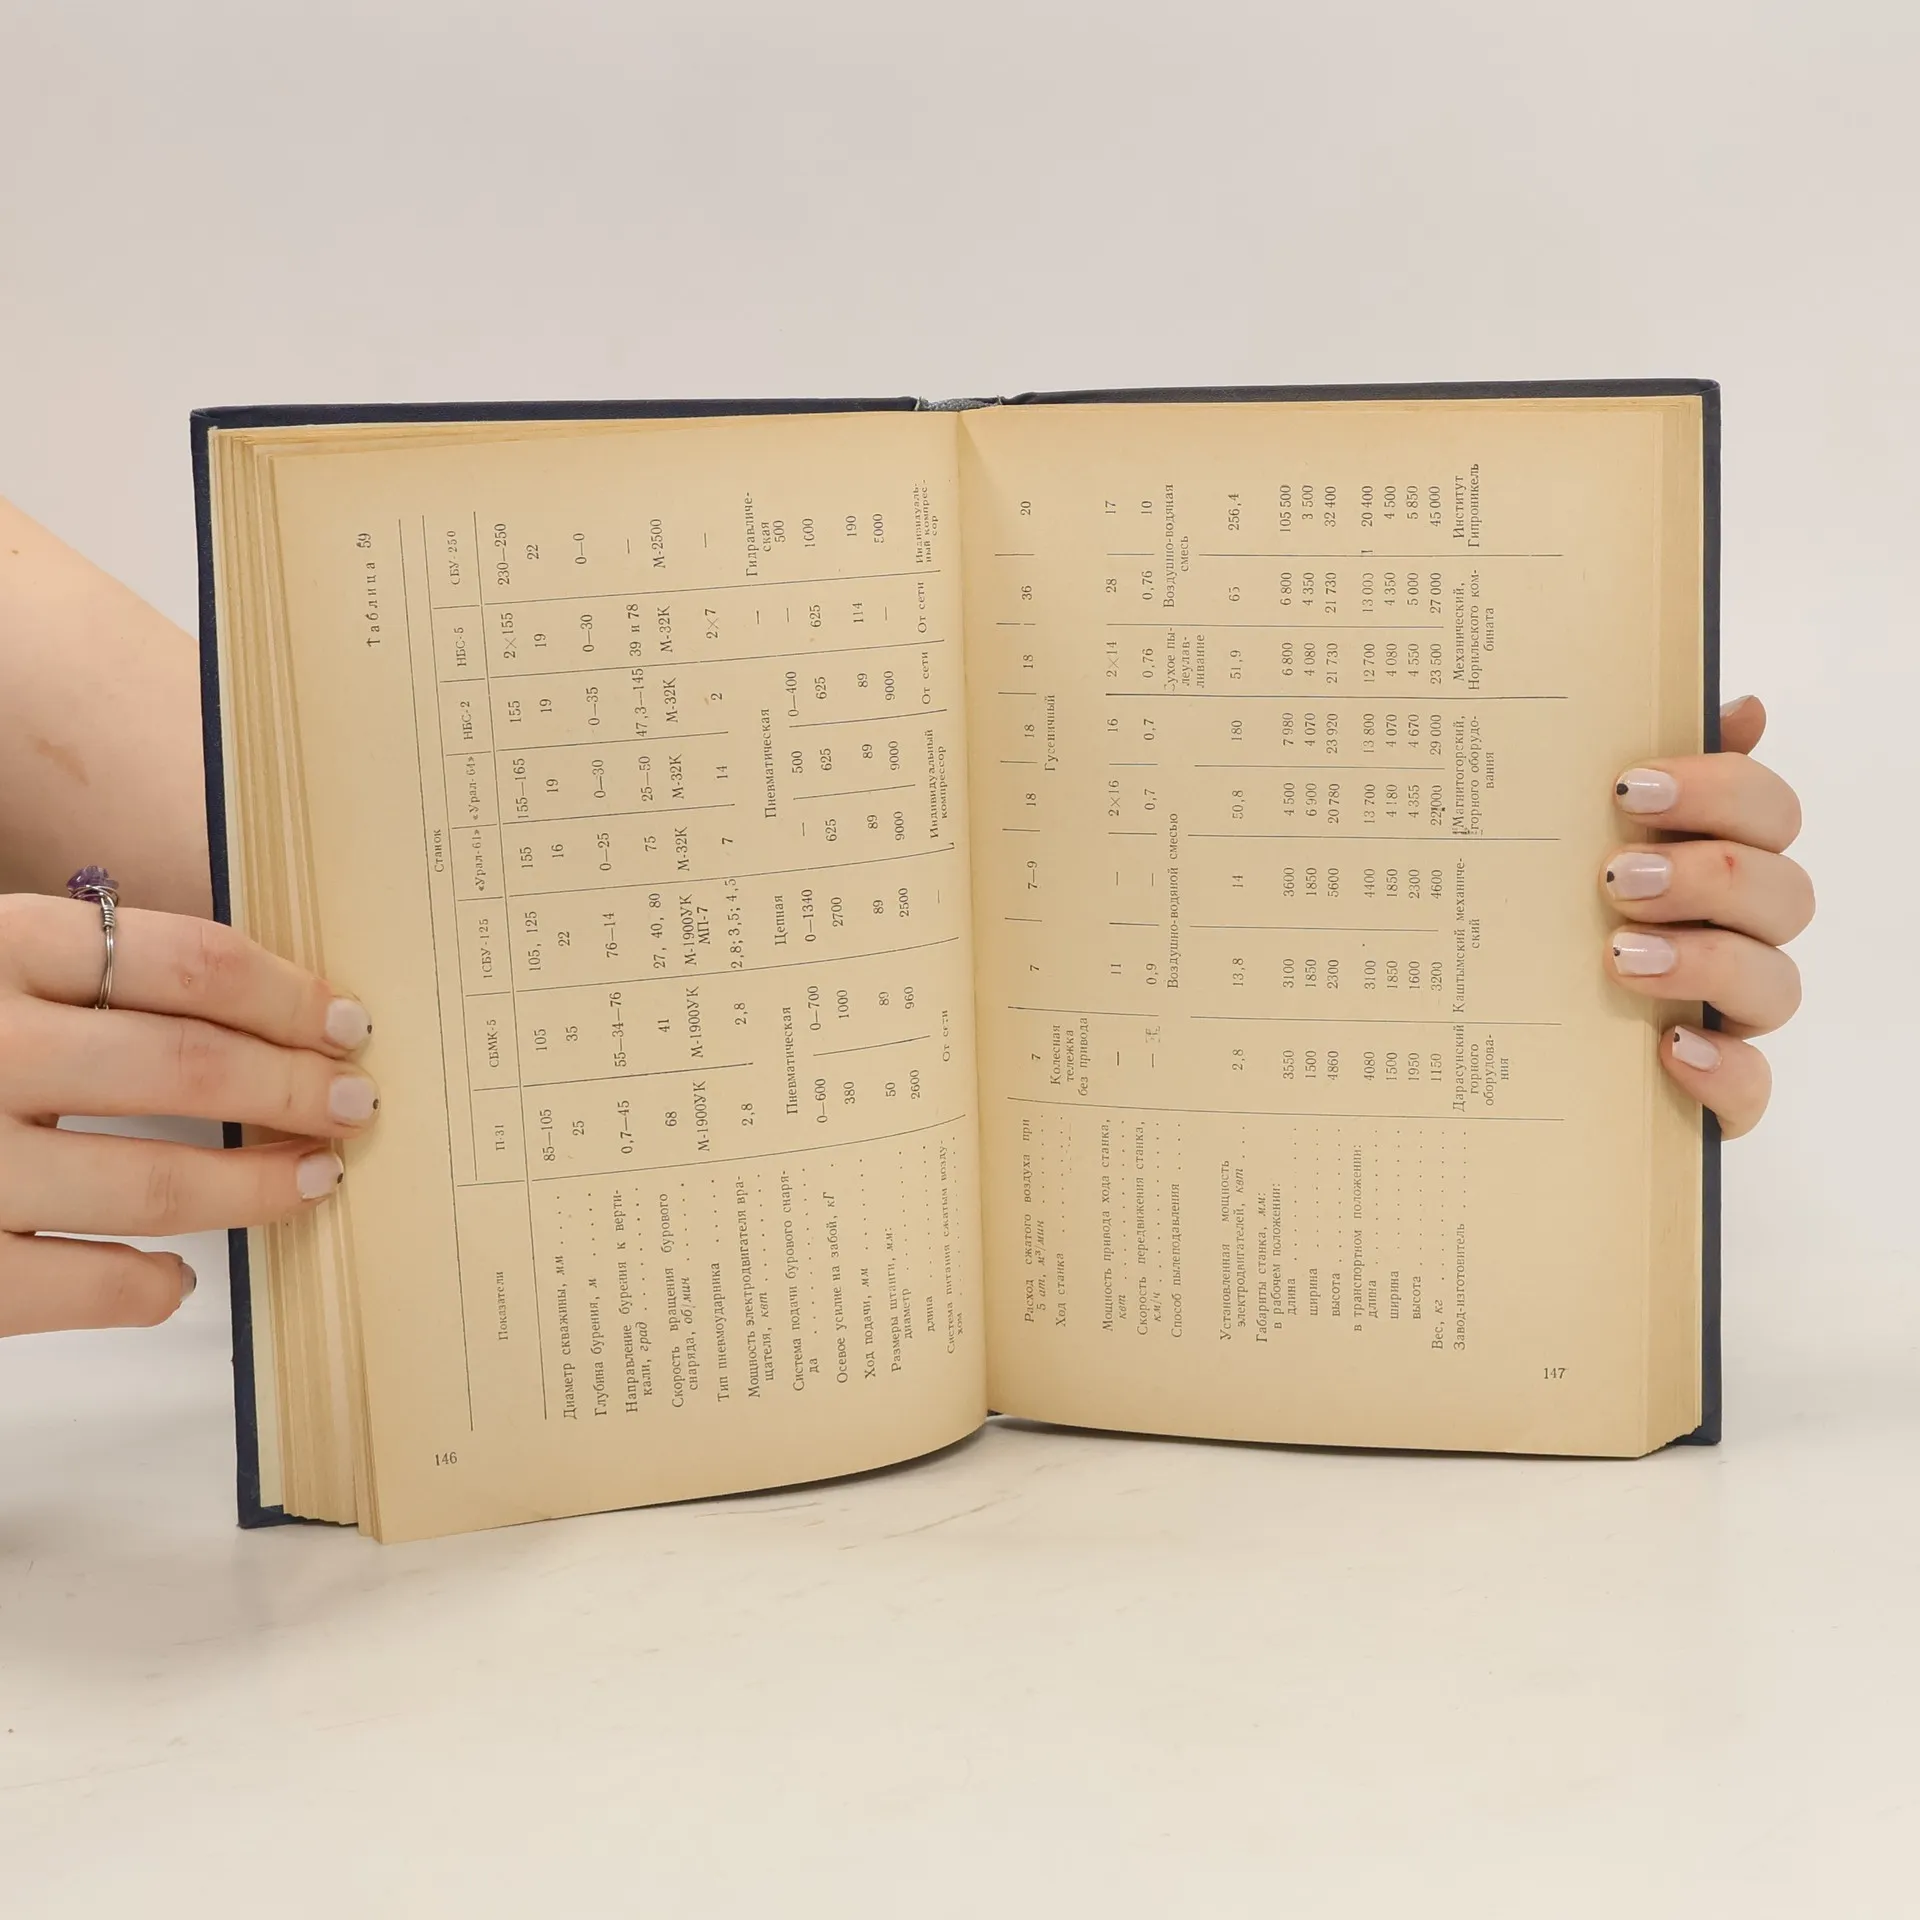 Таблица 59
Станок
Показатели П-31 СБМК-5 1СБУ-125 «Урал-61» «Урал-64» НБС-2 НБС-5 СБУ-250
Диаметр скважины, мм . . . . 85—105 105 105, 125 155 155—165 155 2×155 230—250
Глубина бурения, м . . . . . 25 35 22 16 19 19 19 22
Направление бурения к верти-
кали, град . . . . . . . . 0,7—45 55—34—76 76—14 0—25 0—30 0—35 0—30 0—0
Скорость вращения бурового
снаряда, об/мин . . . . . 68 41 27, 40, 80 75 25—50 47,3—145 39 и 78 —
Тип пневмоударника . . . . М-1900УК М-1900УК М-1900УК М-32К М-32К М-32К М-32К М-2500
МП-7
Мощность электродвигателя вра-
щателя, квт . . . . . . . 2,8 2,8 2,8; 3,5; 4,5 7 14 2 2×7 —
Система подачи бурового снаря-
да . . . . . . . . . . Пневматическая Цепная Пневматическая — Гидравличе-
ская
Осевое усилие на забой, кГ . 0—600 0—700 0—1340 — 500 0—400 — 500
Ход подачи, мм . . . . . . 380 1000 2700 625 625 625 625 1000
Размеры штанги, мм:
диаметр . . . . . . . . 50 89 89 89 89 89 114 190
длина . . . . . . . . . 2600 960 2500 9000 9000 9000 — 5000
Система питания сжатым возду-
хом . . . . . . . . . . От сети — Индивидуальный
компрессор От сети От сети Индивидуаль-
ный компрес-
сор
146
Расход сжатого воздуха при
5 ат, м³/мин . . . . . . 7 7 7—9 18 18 18 36 20
Ход станка . . . . . . . . Колесная
тележка
без привода Гусеничный
Мощность привода хода станка,
квт . . . . . . . . . . — 11 — 2×16 16 2×14 28 17
Скорость передвижения станка,
км/ч . . . . . . . . . — 0,9 — 0,7 0,7 0,76 0,76 10
Способ пылеподавления . . . . Воздушно-водяной смесью Сухое пы-
леулав-
ливание Воздушно-водяная
смесь
Установленная мощность
электродвигателей, квт . . 2,8 13,8 14 50,8 180 51,9 65 256,4
Габариты станка, мм:
в рабочем положении:
длина . . . . . . . . 3550 3100 3600 4 500 7 980 6 800 6 800 105 500
ширина . . . . . . . 1500 1850 1850 6 900 4 070 4 080 4 350 3 500
высота . . . . . . . 4860 2300 5600 20 780 23 920 21 730 21 730 32 400
в транспортном положении:
длина . . . . . . . . 4080 3100 4400 13 700 13 800 12 700 13 000 20 400
ширина . . . . . . . 1500 1850 1850 4 180 4 070 4 080 4 350 4 500
высота . . . . . . . 1950 1600 2300 4 355 4 670 4 550 5 000 5 850
Вес, кг . . . . . . . . . 1150 3200 4600 22 000 29 000 23 500 27 000 45 000
Завод-изготовитель . . . . . Дарасунский
горного
оборудова-
ния Каштымский механиче-
ский Магнитогорский,
горного оборудо-
вания Механический,
Норильского ком-
бината Институт
Гипроникель
147